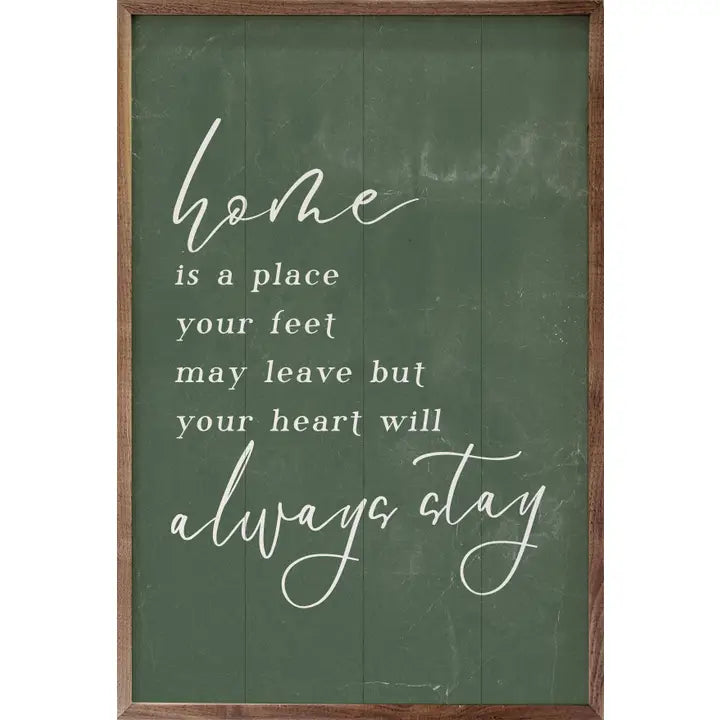 home
is a place
your feet
may leave but
your heart will
always stay